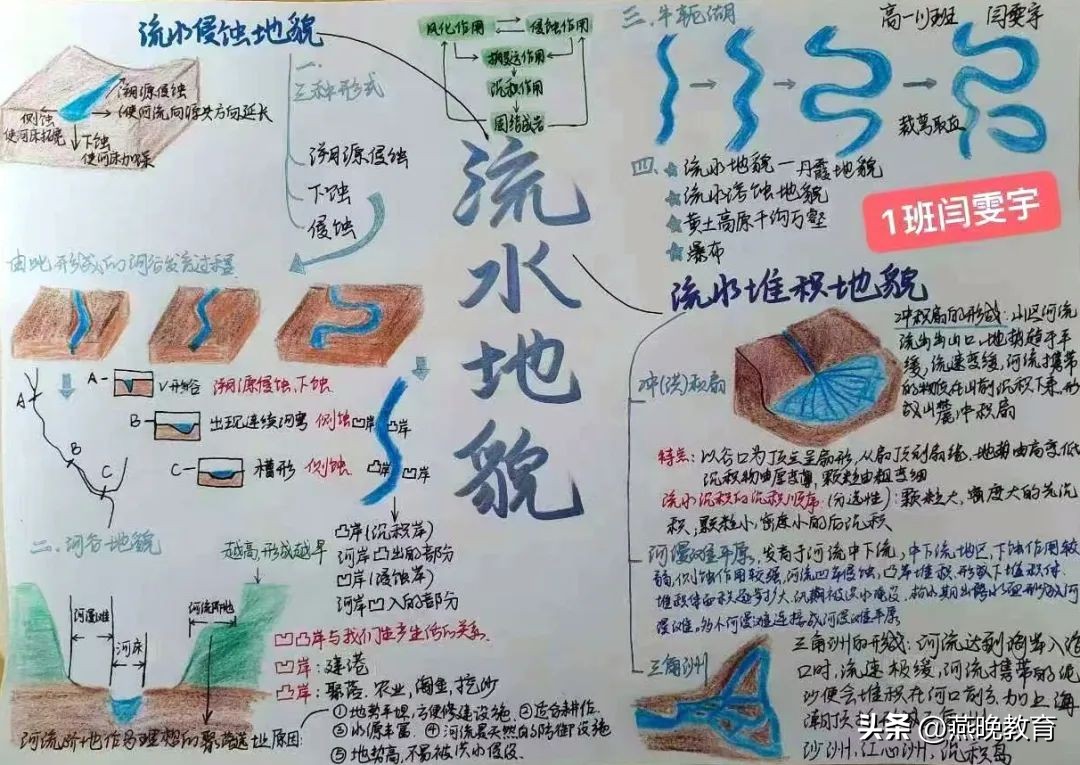 流水侵蚀地貌
溯源侵蚀
(使河流向源头方向延长
侧蚀
使河床拓宽
下蚀
使河床加深
一.
三种形式
溯源侵蚀
下蚀
侵蚀
风化作用
侵蚀作用
搬运作用
沉积作用
固结成岩
流水地貌
三.牛轭湖
高一(1)班
闫雯宇
裁弯取直
四.
流水地貌—丹霞地貌
流水溶蚀地貌
黄土高原千沟万壑
瀑布
1班闫雯宇
由此形成的河谷发育过程
A
B
C
A
V形谷
溯源侵蚀、下蚀
B
出现连续河弯
侧蚀
C
槽形
侧蚀
凹岸
凸岸
凸岸
凹岸
凸岸(沉积岸)
河岸凸出的部分
凹岸(侵蚀岸)
河岸凹入的部分
二.河谷地貌
越高,形成越早
河漫滩
河床
河流阶地
凹凸岸与我们生产生活的关系
凹岸:建港
凸岸:聚落、农业、淘金、挖沙
河流阶地作为理想的聚落选址原因:
①地势平坦,方便修建设施 ②适合耕作
③水源丰富 ④河流是天然的防御设施
⑤地势高,不易被洪水侵没
流水堆积地貌
冲(洪)积扇
冲积扇的形成:山区河流
流出出山口,地势趋于平
缓,流速变缓,河流携带
的物质在山前沉积下来,形
成山麓冲积扇
特点:以谷口为顶点呈扇形,从扇顶到扇缘,地势由高变低
沉积物由厚变薄,颗粒由粗变细
流水沉积的沉积顺序(分选性):颗粒大,密度大的先沉
积,颗粒小,密度小的后沉积
河漫滩平原,发育于河流中下流,中下流地区,下蚀作用较
弱,侧蚀作用较强,河流凹岸侵蚀,凸岸堆积形成下堆积体.
堆积体面积逐步扩大,汛期被洪水淹没,枯水期出露水面形成河
漫滩.多个河漫滩连接成河漫滩平原
三角洲
三角洲的形成:河流达到海岸入海
口时,流速极缓,河流携带的泥
沙便会堆积在河口前方,加上海
沙洲、江心洲、沉积岛
头条 @燕晚教育